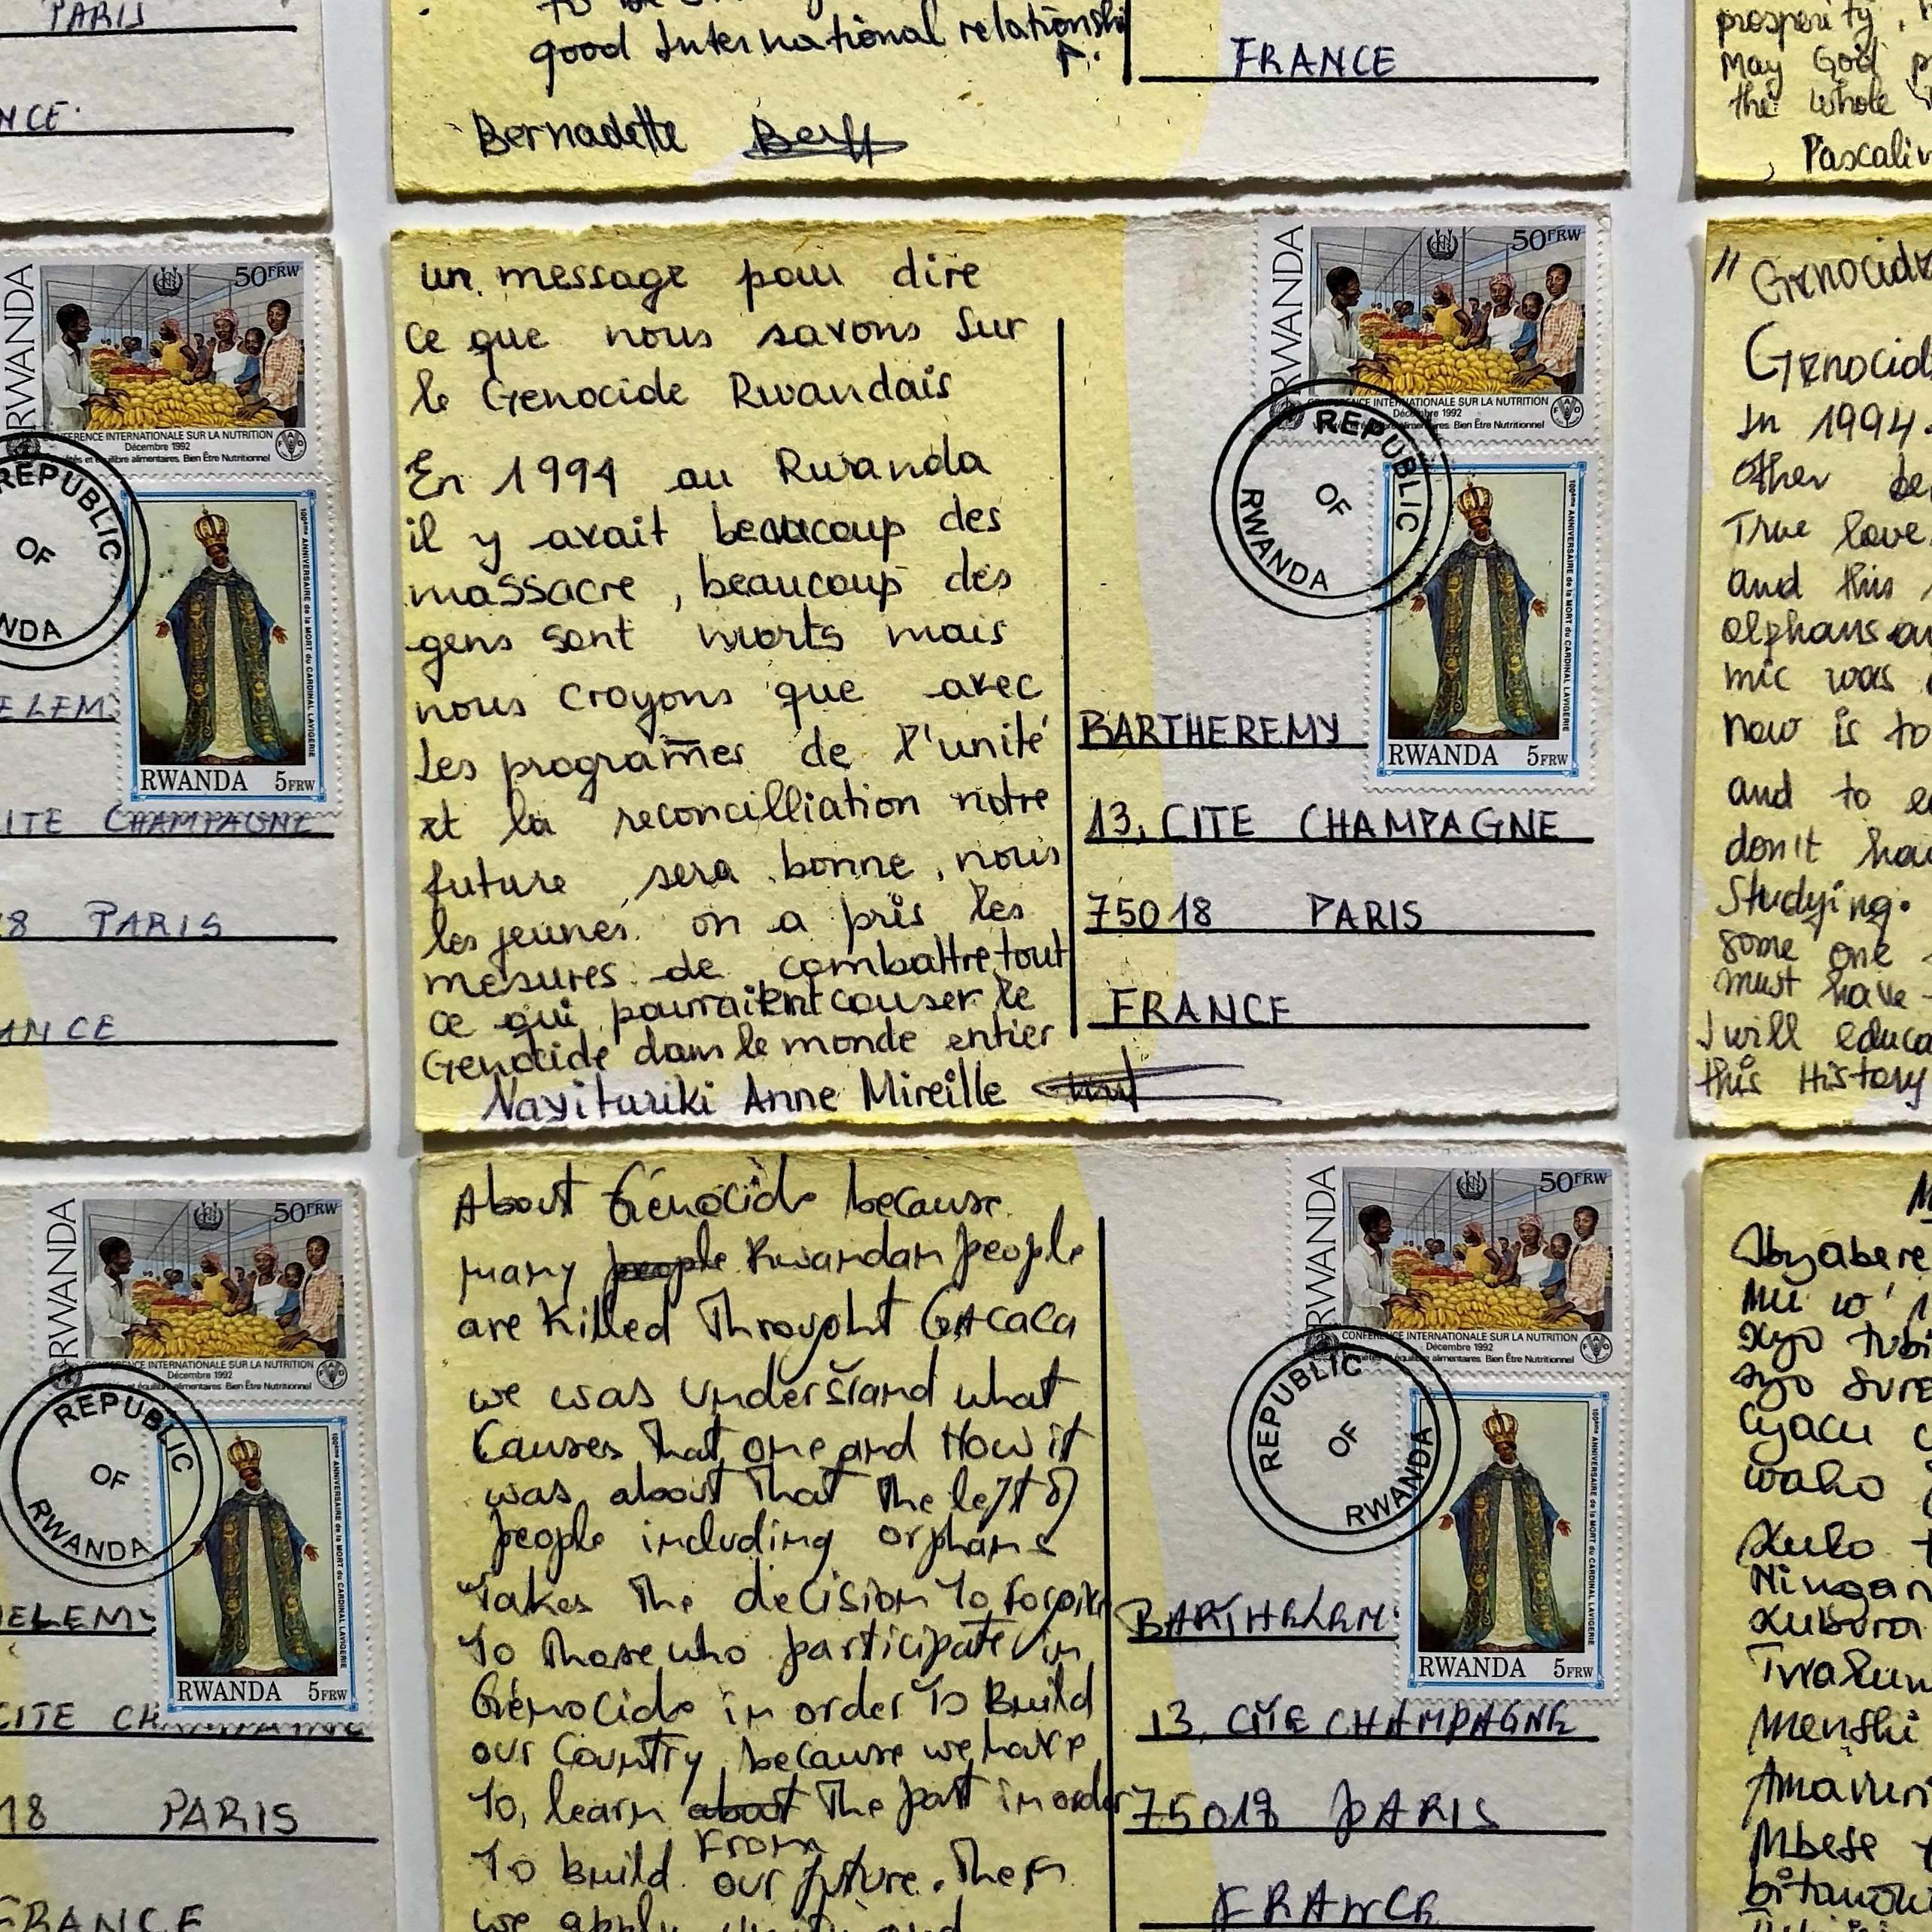 PARIS
NCE.
good International relationship.
Bernadette
FRANCE
prosperity,
May God
the whole
RWANDA
50FRW
CONFERENCE INTERNATIONALE SUR LA NUTRITION
Décembre 1992
et équilibre alimentaires. Bien Être Nutritionnel
REPUBLIC
OF
100ème ANNIVERSAIRE de la MORT du CARDINAL LAVIGERIE
RWANDA 5FRW
CITE CHAMPAGNE
8 PARIS
ANCE
un message pour dire
ce que nous savons sur
le Genocide Rwandais
En 1994 au Rwanda
il y avait beaucoup des
massacre, beaucoup des
gens sont morts mais
nous croyons que avec
Les programmes de l'unité
et la reconcilliation notre
future sera bonne, nous
les jeunes on a pris les
mesures de combattre tout
ce qui pourraient causer le
Genocide dans le monde entier
Nayituriki Anne Mireille
RWANDA
50FRW
CONFERENCE INTERNATIONALE SUR LA NUTRITION
Décembre 1992
alimentaires. Bien Être Nutritionnel
REPUBLIC
OF
RWANDA
100ème ANNIVERSAIRE de la MORT du CARDINAL LAVIGERIE
RWANDA 5FRW
BARTHEREMY
13, CITE CHAMPAGNE
75018 PARIS
FRANCE
"Genocide
Genocid
In 1994
other
True love
and this
olphans
mic was
now is to
and to
don't
Studying.
some one
must have
I will educa
this History
RWANDA
50FRW
CONFERENCE INTERNATIONALE SUR LA NUTRITION
Décembre 1992
équilibre alimentaires. Bien Être Nutritionnel
REPUBLIC
OF
RWANDA
100ème ANNIVERSAIRE de la MORT du CARDINAL LAVIGERIE
RWANDA 5FRW
CITE
18 PARIS
FRANCE
About Génocide because
many people Rwandan people
are Killed Throught GACACA
we was understand what
Causes that one and How it
was about that the left of
people including orphans
Takes the decision to forgive
To Those who participate in
Génocide in order To Build
our Country because we have
To, learn about The past in order
from
To build our future. Then
we apply and
RWANDA
50FRW
CONFERENCE INTERNATIONALE SUR LA NUTRITION
Décembre 1992
équilibre alimentaires. Bien Être Nutritionnel
REPUBLIC
OF
RWANDA
100ème ANNIVERSAIRE de la MORT du CARDINAL LAVIGERIE
RWANDA 5FRW
BARTHELEM
13, CITE CHAMPAGNE
75018 PARIS
FRANCE
Menshi
Mbese